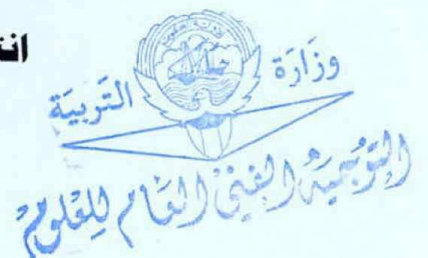 انت
وزَارَة التّربيَة
التوجيه الفني العام للعلوم